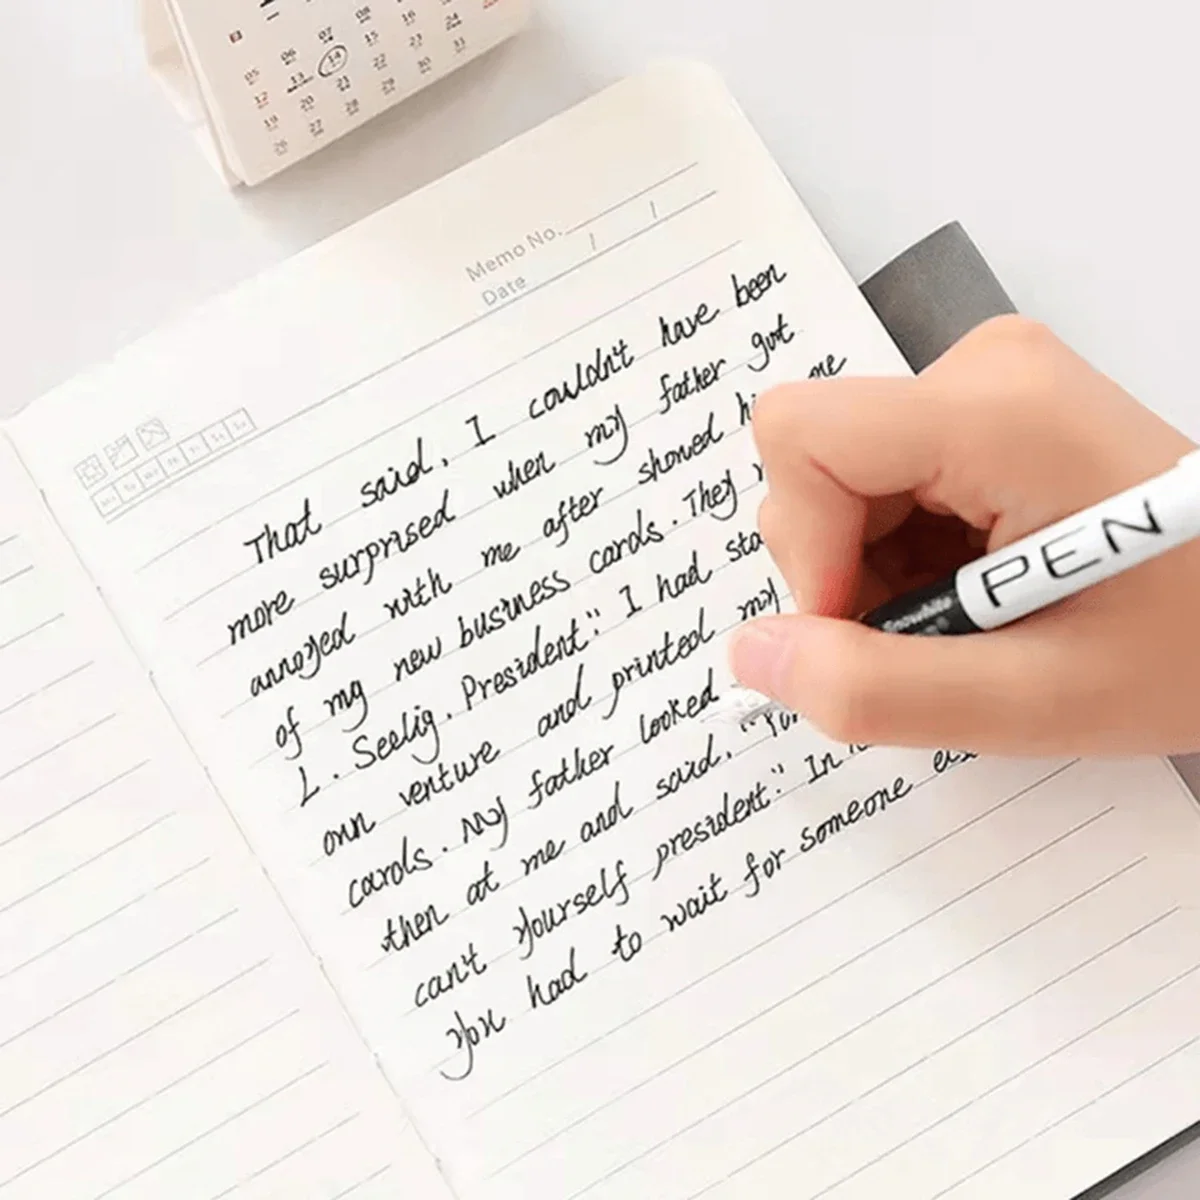 05 06 07 08
12 13 14 15 16
19 20 21 22 23 24
26 27 28 29 30 31
Memo No.
Date / /
That said, I couldn't have been
more surprised when my father got
annoyed with me after showed me
of my new business cards. They
L. Seelig. President." I had
own venture and printed my
cards. My father looked
then at me and said, "You
can't yourself president." In
you had to wait for someone
PEN
Snowhite